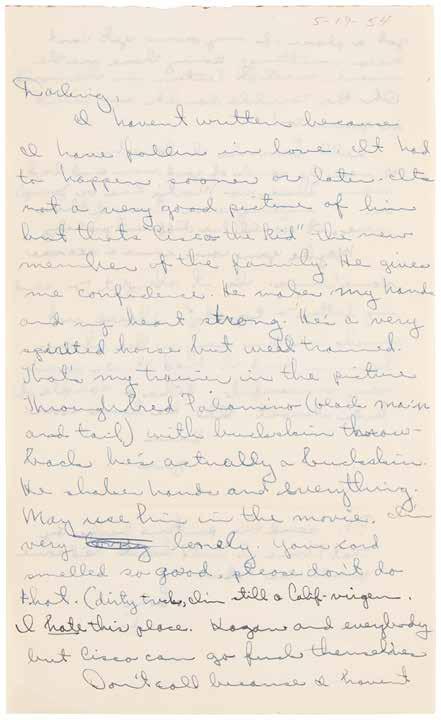 5-19-54
Darling,
I havent written because
I have fallin in love. It had
to happen sooner or later. Its
not a very good picture of him
but thats "Cisco the Kid" the new
member of the family. He gives
me confidence. He make my hands
and my heart strong. He's a very
spirited horse but well trained.
That's my trainer in the picture
Through bred Palamino (black main
and tail) with buckskin throw-
back he's actually a buckskin.
He shakes hands and everything.
May use him in the movie. I'm
very lonely. Your card
smelled so good, please don't do
that. (dirty trick, I'm still a Calif-virgen.
I hate this place. Hogan and everybody
but Cisco can go fuck themselves
Don't call because I havent